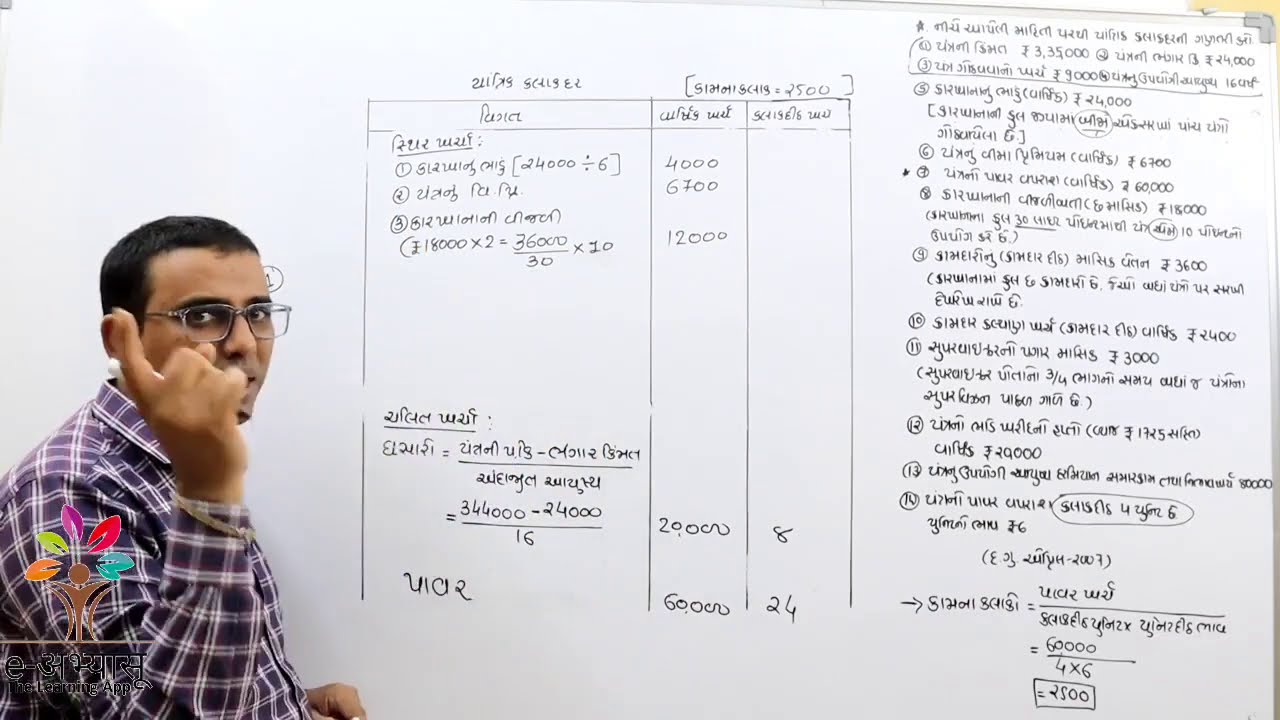 યાંત્રિક કલાકદર [કામના કલાક = ૨૫૦૦]
વિગત વાર્ષિક ખર્ચ કલાકદીઠ ખર્ચ
સ્થિર ખર્ચા :
① કારખાનુ ભાડું [24000 ÷ 6] 4000
② યંત્રનું વિ. પ્રિ. 6700
③ કારખાનાની વીજળી
(₹18000 × 2 = 36000/30 × 10 12000
ચલિત ખર્ચા :
ઘસારો = યંત્રની પ.કિ - ભંગાર કિંમત
અંદાજીત આયુષ્ય
= 344000 - 24000
16 20,000 8
પાવર 60,000 24
* નીચે આપેલી માહિતી પરથી યાંત્રિક કલાકદરની ગણતરી કરો.
① યંત્રની કિંમત ₹ 3,35,000 ② યંત્રની ભંગાર કિં ₹ 24,000
③ યંત્ર ગોઠવવાનો ખર્ચ ₹ 9000 ④ યંત્રનુ ઉપયોગી આયુષ્ય 16 વર્ષ
⑤ કારખાનાનું ભાડું (વાર્ષિક) ₹ 24,000
[કારખાનાની કુલ જગ્યામાં એકસરખાં પાંચ યંત્રો
ગોઠવાયેલા છે.]
⑥ યંત્રનું વીમા પ્રિમિયમ (વાર્ષિક) ₹ 6700
* ⑦ યંત્રનો પાવર વપરાશ (વાર્ષિક) ₹ 60,000
⑧ કારખાનાની વીજળીબત્તી (છ માસિક) ₹ 18000
(કારખાનાના કુલ 30 લાઇટ પોઇન્ટમાંથી યંત્ર 10 પોઇન્ટનો
ઉપયોગ કરે છે.)
⑨ કામદારોનું (કામદાર દીઠ) માસિક વેતન ₹ 3600
(કારખાનામાં કુલ છ કામદારો છે. જેઓ બધાં યંત્રો પર સરખી
દેખરેખ રાખે છે.
⑩ કામદાર કલ્યાણ ખર્ચ (કામદાર દીઠ) વાર્ષિક ₹ 2400
⑪ સુપરવાઇઝરનો પગાર માસિક ₹ 3000
(સુપરવાઇઝર પોતાનો 3/4 ભાગનો સમય બધાં જ યંત્રોના
સુપરવિઝન પાછળ ગાળે છે.)
⑫ યંત્રનો ભાડે ખરીદનો હપ્તો (વ્યાજ ₹ 1725 સહિત)
વાર્ષિક ₹ 20,000
⑬ યંત્રનુ ઉપયોગી આયુષ્ય દરમિયાન સમારકામ તથા 80000
⑭ યંત્રનો પાવર વપરાશ કલાકદીઠ ૪ યુનિટ છે
યુનિટનો ભાવ ₹6
(દ.ગુ. એપ્રિલ-2007)
→ કામના કલાકો = પાવર ખર્ચ
કલાકદીઠ યુનિટ × યુનિટદીઠ ભાવ
= 60000
4×6
= ૨૫૦૦
e-अभ्यासू
The Learning App